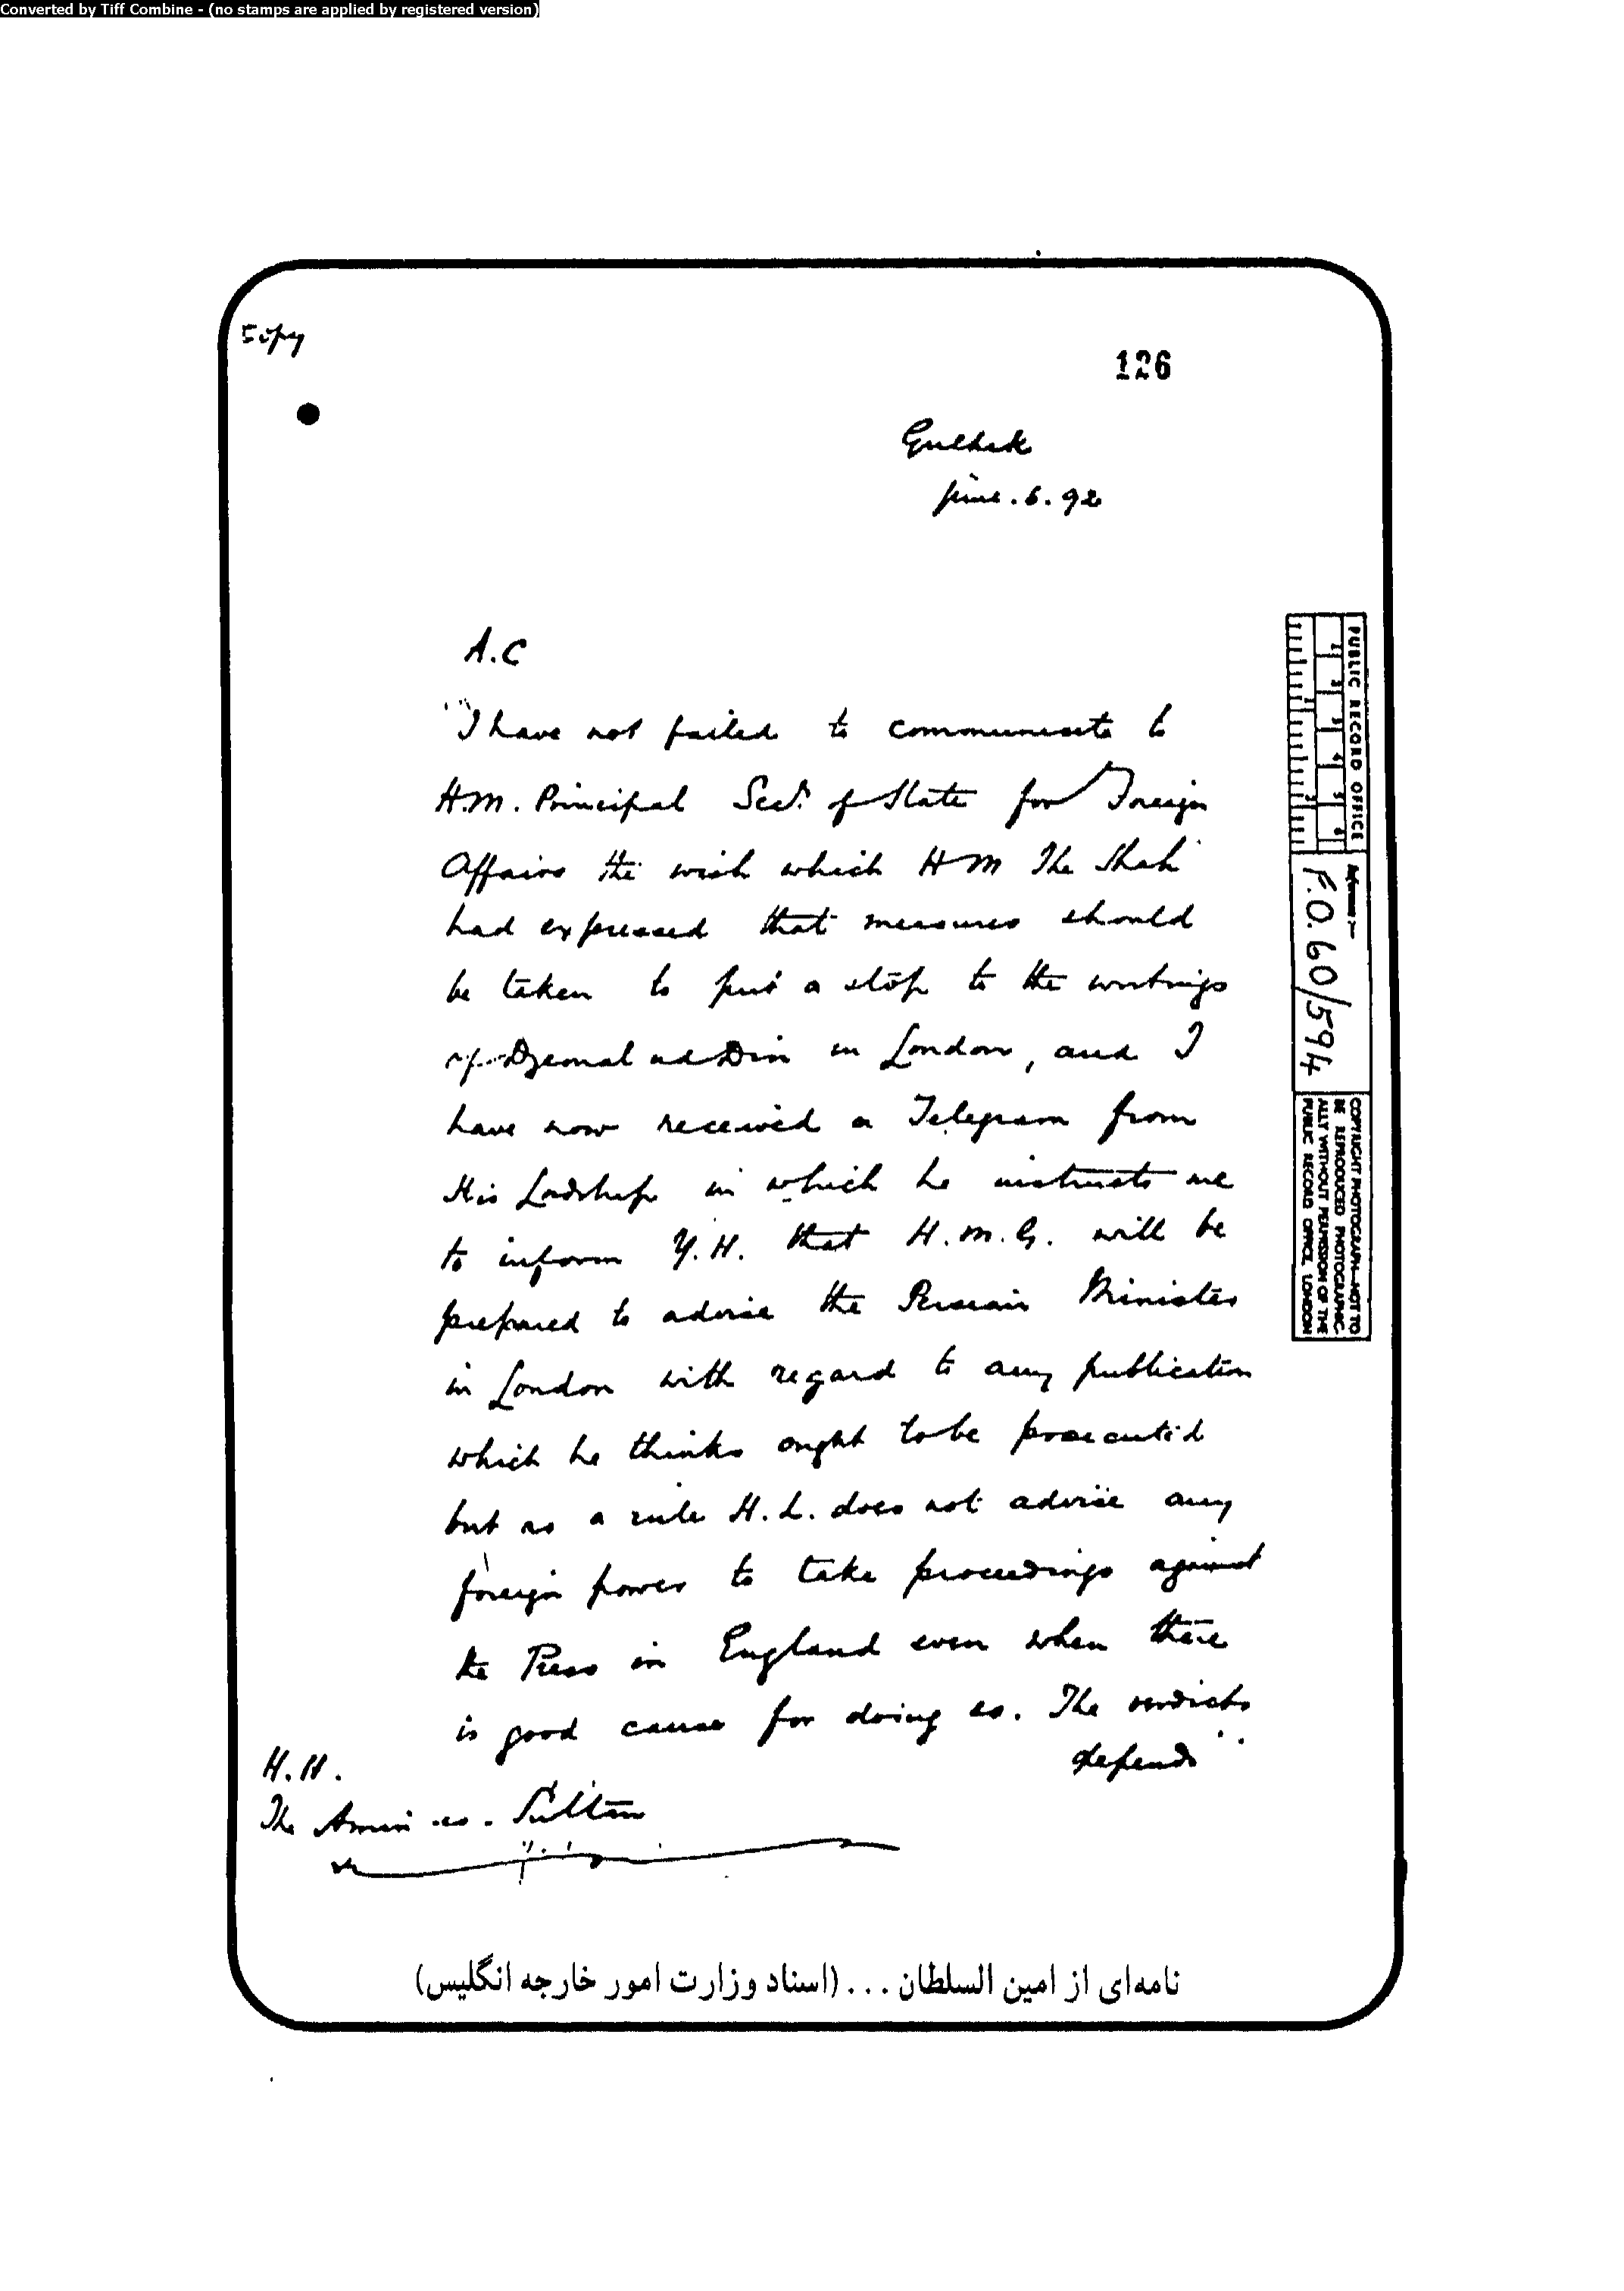 Converted by Tiff Combine - (no stamps are applied by registered version)
Copy
126
Gulhek
June. 6. 92
A.C
I have not failed to communicate to
H.M. Principal Secy. of State for Foreign
Affairs the wish which H M The Shah
had expressed that measures should
be taken to put a stop to the writings
of Djemal ad Din in London, and I
have now received a Telegram from
His Lordship in which he instructs me
to inform Y.H. that H.M.G. will be
prepared to advise the Persian Minister
in London with regard to any publication
which he thinks ought to be prosecuted
but as a rule H.L. does not advise any
foreign power to take proceedings against
the Press in England even when there
is good cause for doing so. The verdicts
depend
H.H.
The Amin-es-Sultan
PUBLIC RECORD OFFICE
Reference:-
F.O. 60/594
COPYRIGHT PHOTOGRAPH-NOT TO
BE REPRODUCED PHOTOGRAPHIC-
ALLY WITHOUT PERMISSION OF THE
PUBLIC RECORD OFFICE, LONDON
نامه‌ای از امین السلطان ... (اسناد وزارت امور خارجه انگلیس)